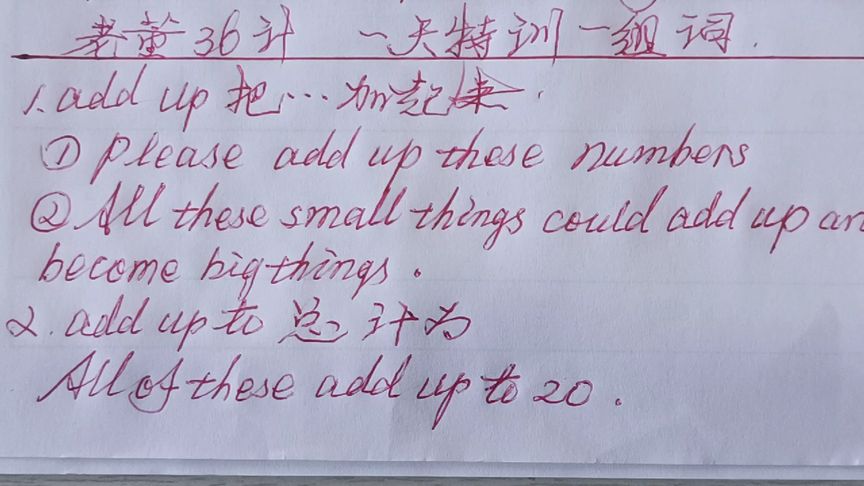 老董36计 一天特训一组词.
1. add up 把…加起来.
① Please add up these numbers
② All these small things could add up an
become big things.
2. add up to 总计为
All of these add up to 20.